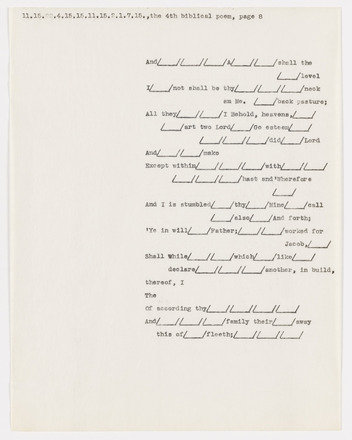 11.15. .4.15.15.11.15.2.1.7.15.,the 4th biblical poem, page 8
And/____//____//____/A/____//____/shall the
/____/level
I/____/not shall be thy/____//____//____/neck
em Me. /____/back pasture;
All they/____//____/I Behold, heavens,/____/
/____/art two Lord/____/Se esteem/____/
/____//____//____/did/____/Lord
And/____//____/make
Except within/____//____//____/with/____//____/
/____//____//____/hast end'Wherefore
/____/
And I is stumbled/____/thy/____/Mine/____/call
/____/also/____/And forth;
'Ye in will/____/Father;/____//____/worked for
Jacob,/____/
Shall While/____//____/which/____/like/____/
declare/____//____//____/another, in build,
thereof, I
The
Of according thy/____//____//____//____/
And/____//____//____/family their/____/away
this of/____/fleeth;/____//____//____/